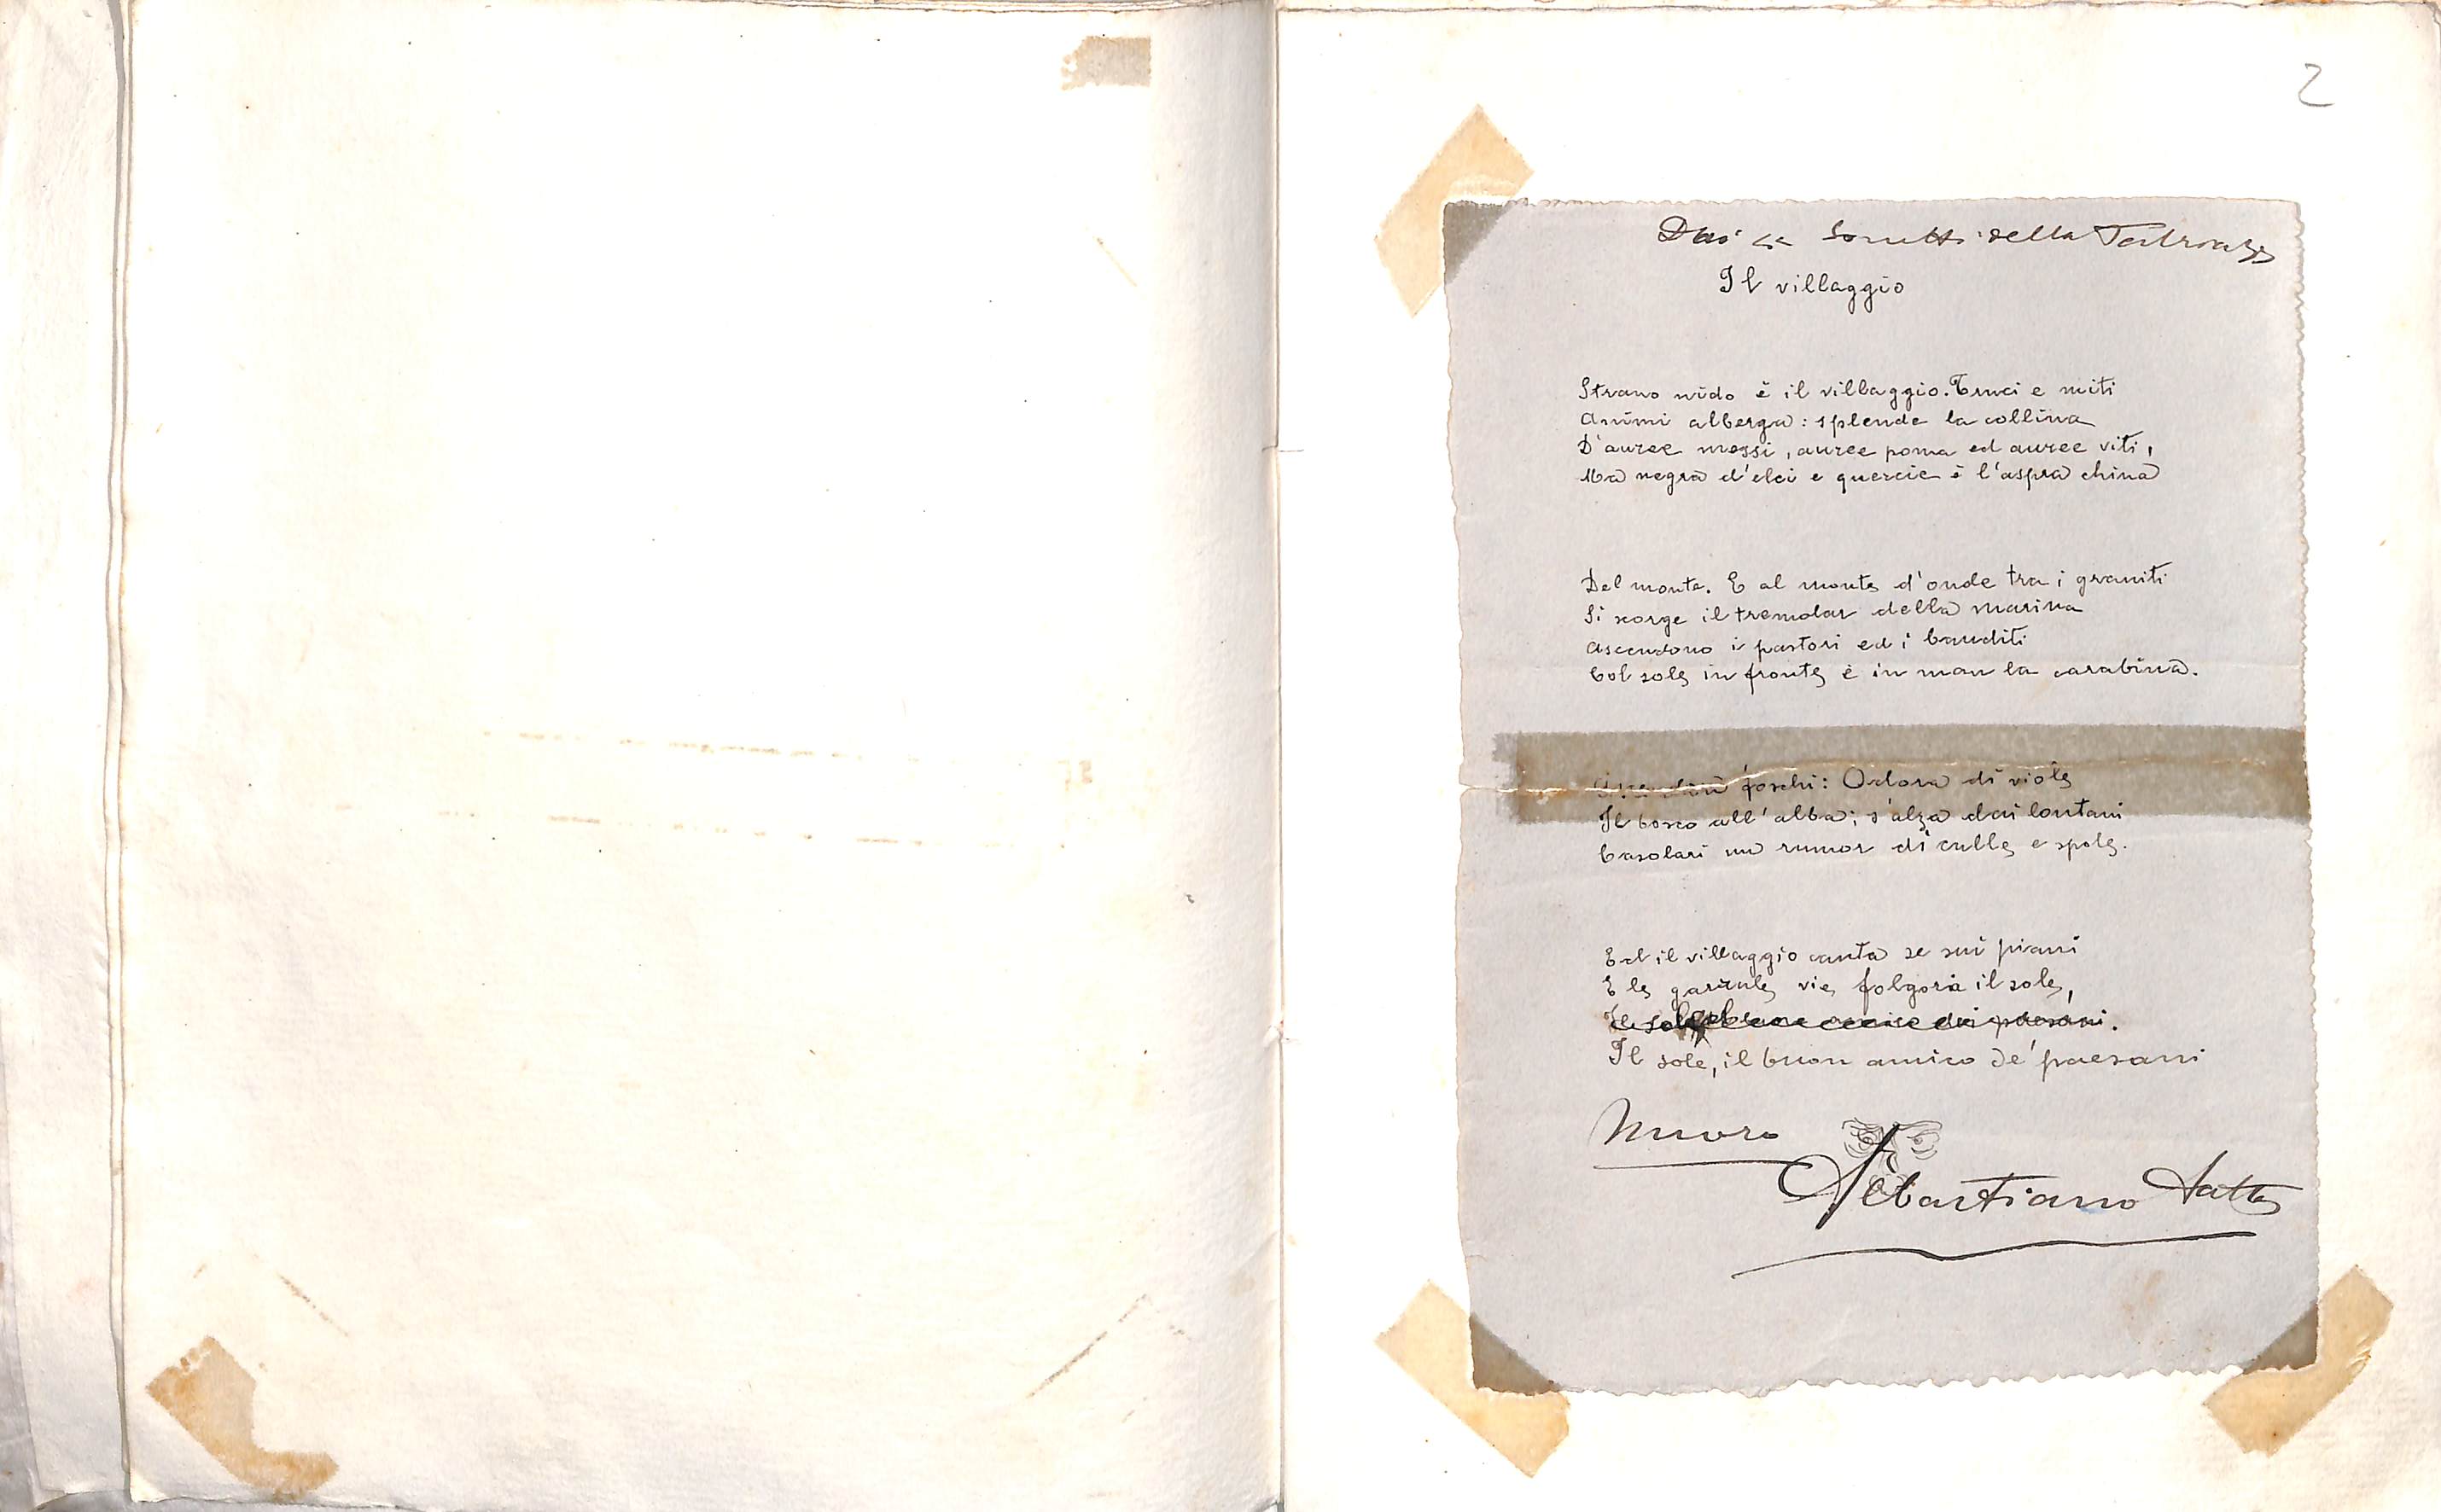 2
Dai << Sonetti della
Il villaggio
Strano nido è il villaggio. Truci e miti
Animi alberga: splende la collina
D'auree messi, auree poma ed auree viti,
Ma negra d'elci e quercie è l'aspra china
Del monte. E al monte d'onde tra i graniti
Si scorge il tremolar della marina
Ascendono i pastori ed i banditi
Col sole in fronte e in man la carabina.
foschi: Odora di viole
Il bosco all'alba; s'alza dai lontani
Casolari un rumor di culle e spole.
Ed il villaggio canta se sui piani
E le garrule vie folgora il sole,
Il sole buon amico dei paesani.
Il sole, il buon amico de' paesani
Nuoro
Sebastiano Satta